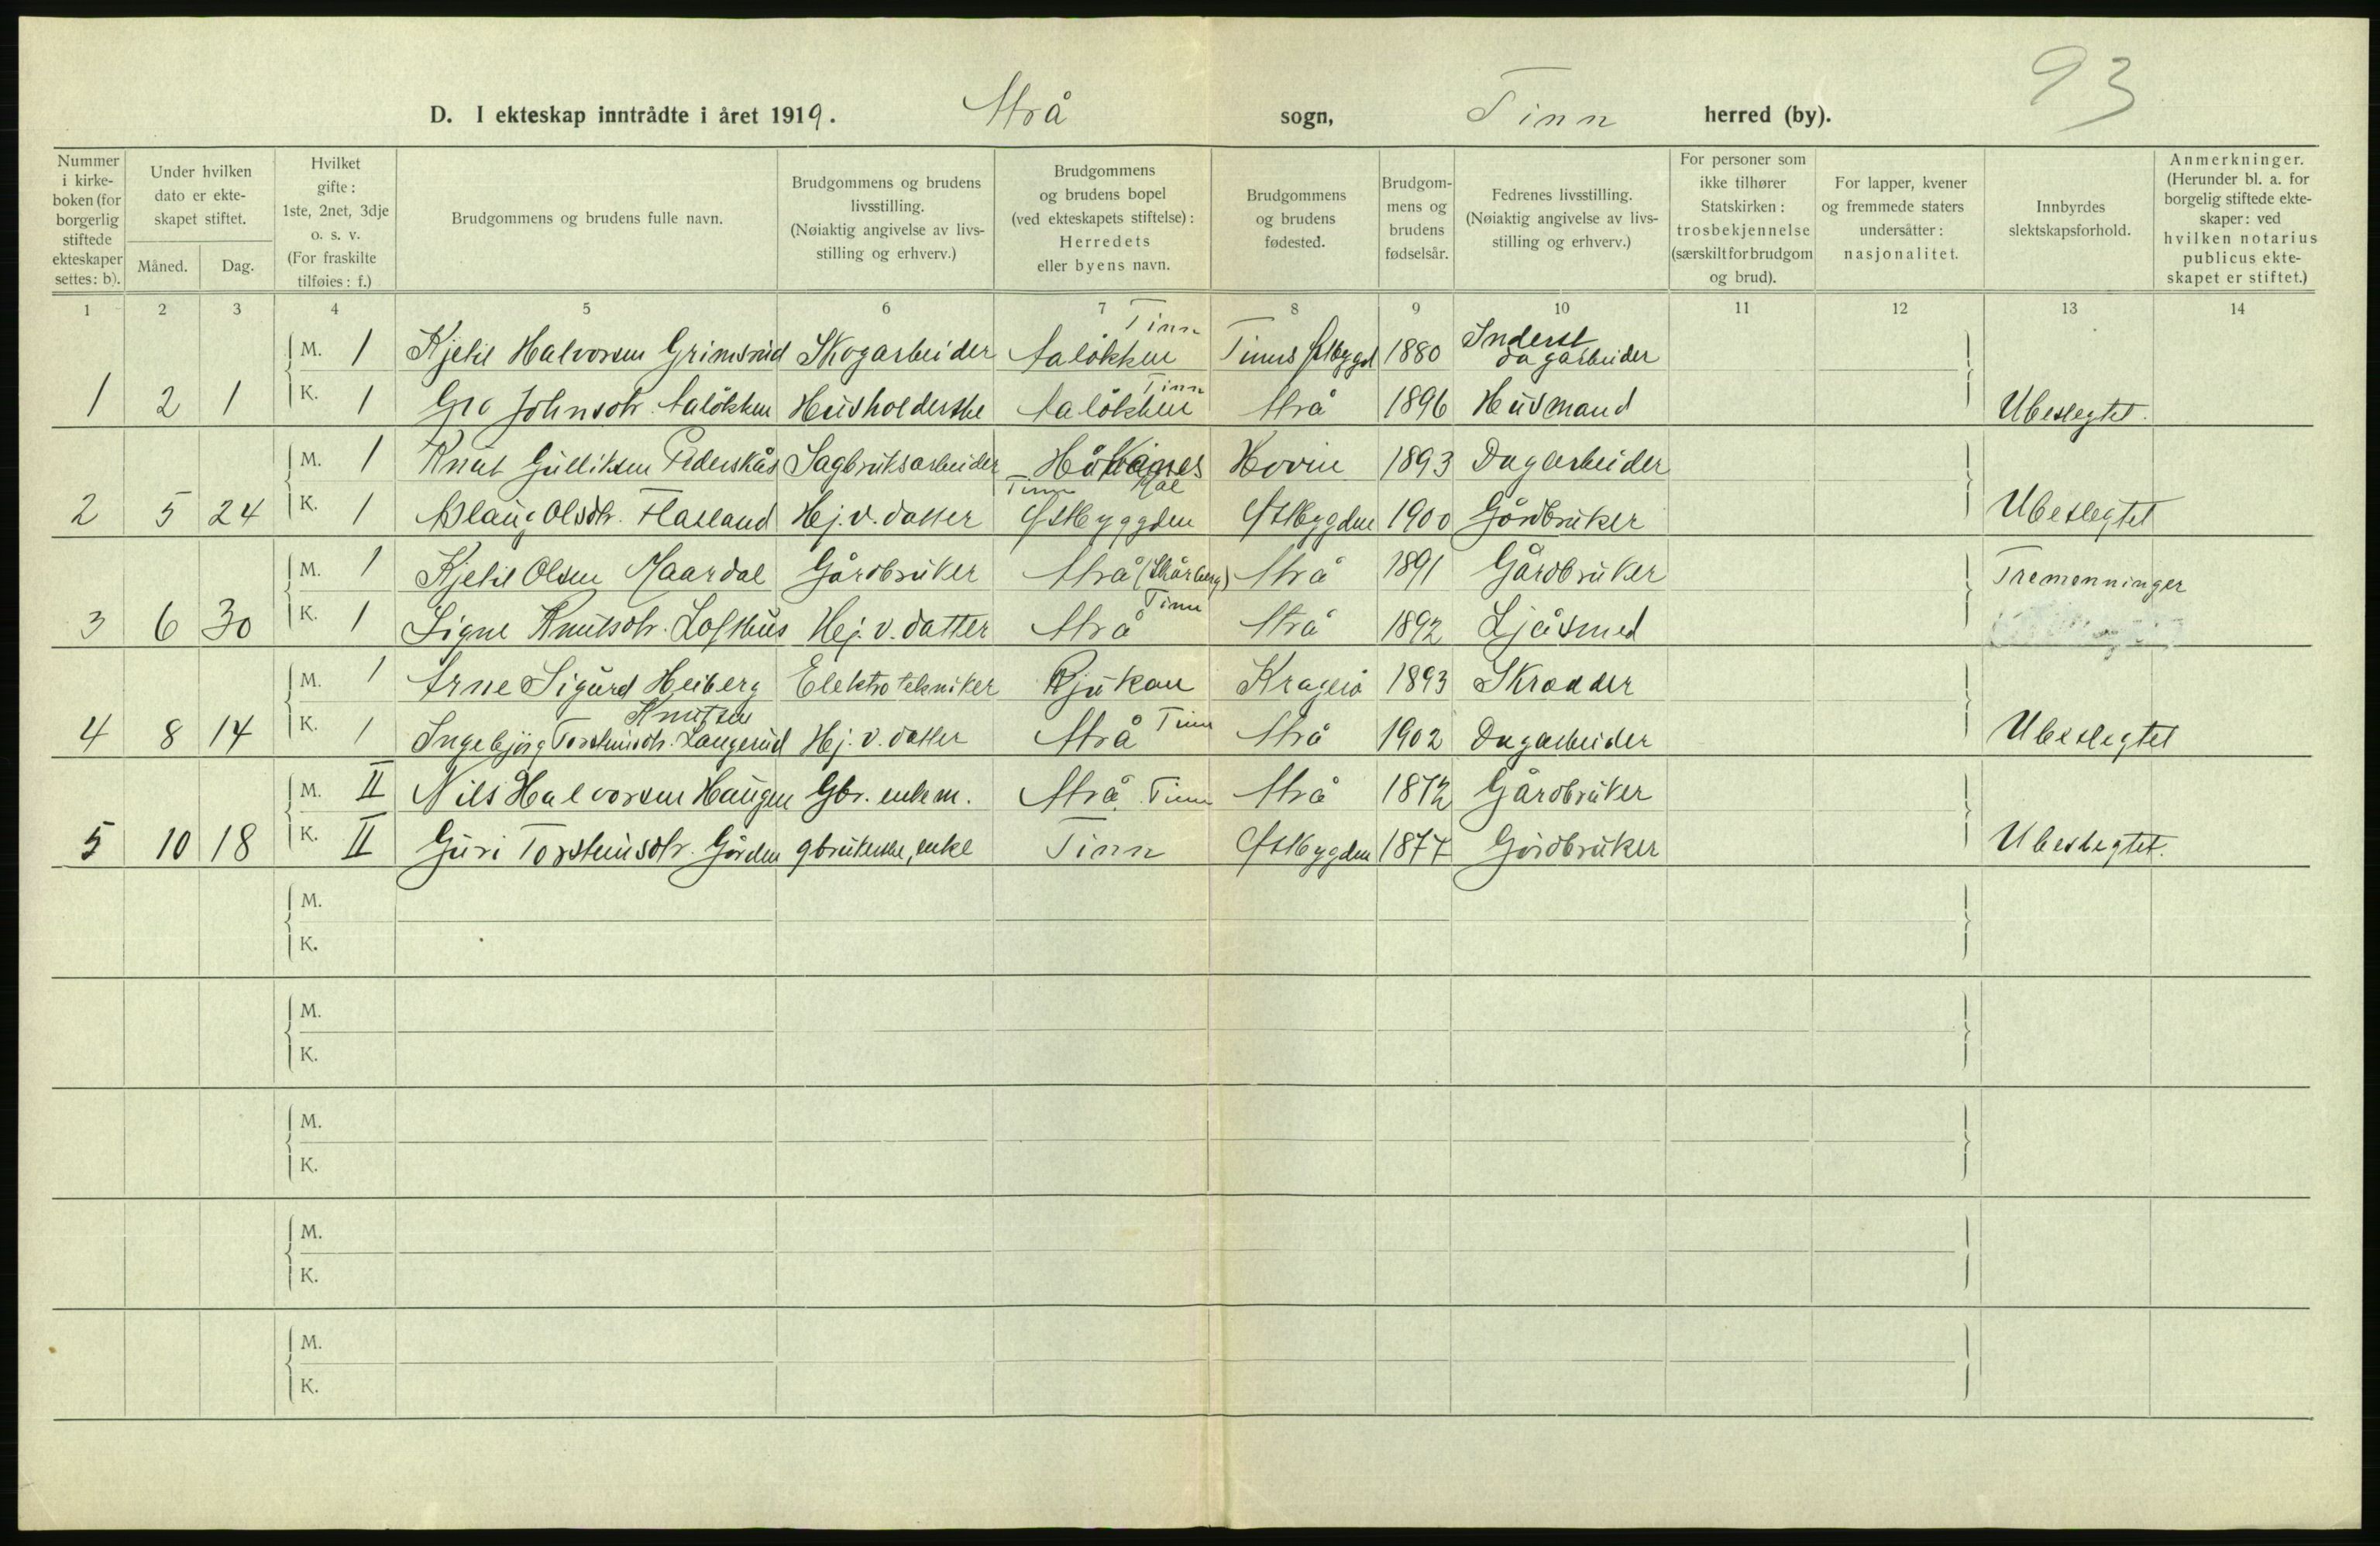 93
D. I ekteskap inntrådte i året 1919. Atrå sogn, Tinn herred (by).
Nummer i kirkeboken (for borgerlig stiftede ekteskaper settes: b).
Under hvilken dato er ekteskapet stiftet.
Måned. Dag.
Hvilket gifte: 1ste, 2net, 3dje o. s. v. (For fraskilte tilføies: f.)
Brudgommens og brudens fulle navn.
Brudgommens og brudens livsstilling. (Nøiaktig angivelse av livsstilling og erhverv.)
Brudgommens og brudens bopel (ved ekteskapets stiftelse): Herredets eller byens navn.
Brudgommens og brudens fødested.
Brudgommens og brudens fødselsår.
Fedrenes livsstilling. (Nøiaktig angivelse av livsstilling og erhverv.)
For personer som ikke tilhører Statskirken: trosbekjennelse (særskilt for brudgom og brud).
For lapper, kvener og fremmede staters undersåtter: nasjonalitet.
Innbyrdes slektskapsforhold.
Anmerkninger. (Herunder bl. a. for borgelig stiftede ekteskaper: ved hvilken notarius publicus ekteskapet er stiftet.)
1 2 3 4 5 6 7 8 9 10 11 12 13 14
M. 1 Kjetil Halvorsen Grimsrud Skogarbeider Aaløkken Tinn Tinns Østbygd 1880 Inderst dagarbeider
1 2 1 K. 1 Gro Johnsdtr. Aaløkken Husholderske Aaløkken Tinn Atrå 1896 Husmand Ubeslegtet.
M. 1 Knut Gulliksen Pederskås Sagbruksarbeider Håkanes Mæl Hovin 1893 Dagarbeider
2 5 24 K. 1 Aslaug Olsdtr. Flatland Hj. v. datter Tinn Østbyggden Østbygden 1900 Gårdbruker Ubeslegtet
M. 1 Kjetil Olsen Maardal Gårdbruker Atrå (Skårberg) Atrå 1891 Gårdbruker Tremenninger
3 6 30 K. 1 Signe Knutsdtr. Lofthus Hej. v. datter Atrå Tinn Atrå 1892 Ljåsmed
M. 1 Arne Sigurd Heiberg Knutsen Elektrotekniker Rjukan Kragerø 1893 Skrædder
4 8 14 K. 1 Ingebjørg Torsteinsdtr. Langerud Hej. v. datter Atrå Tinn Atrå 1902 Dagarbeider Ubeslegtet
M. II Nils Halvorsen Haugen Gbr. enkem. Atrå. Tinn Atrå 1872 Gårdbruker
5 10 18 K. II Guri Torsteinsdtr. Gården gbrukerske, enke Tinn Østbygden 1877 Gårdbruker Ubeslegtet.
M.
K.
M.
K.
M.
K.
M.
K.
M.
K.